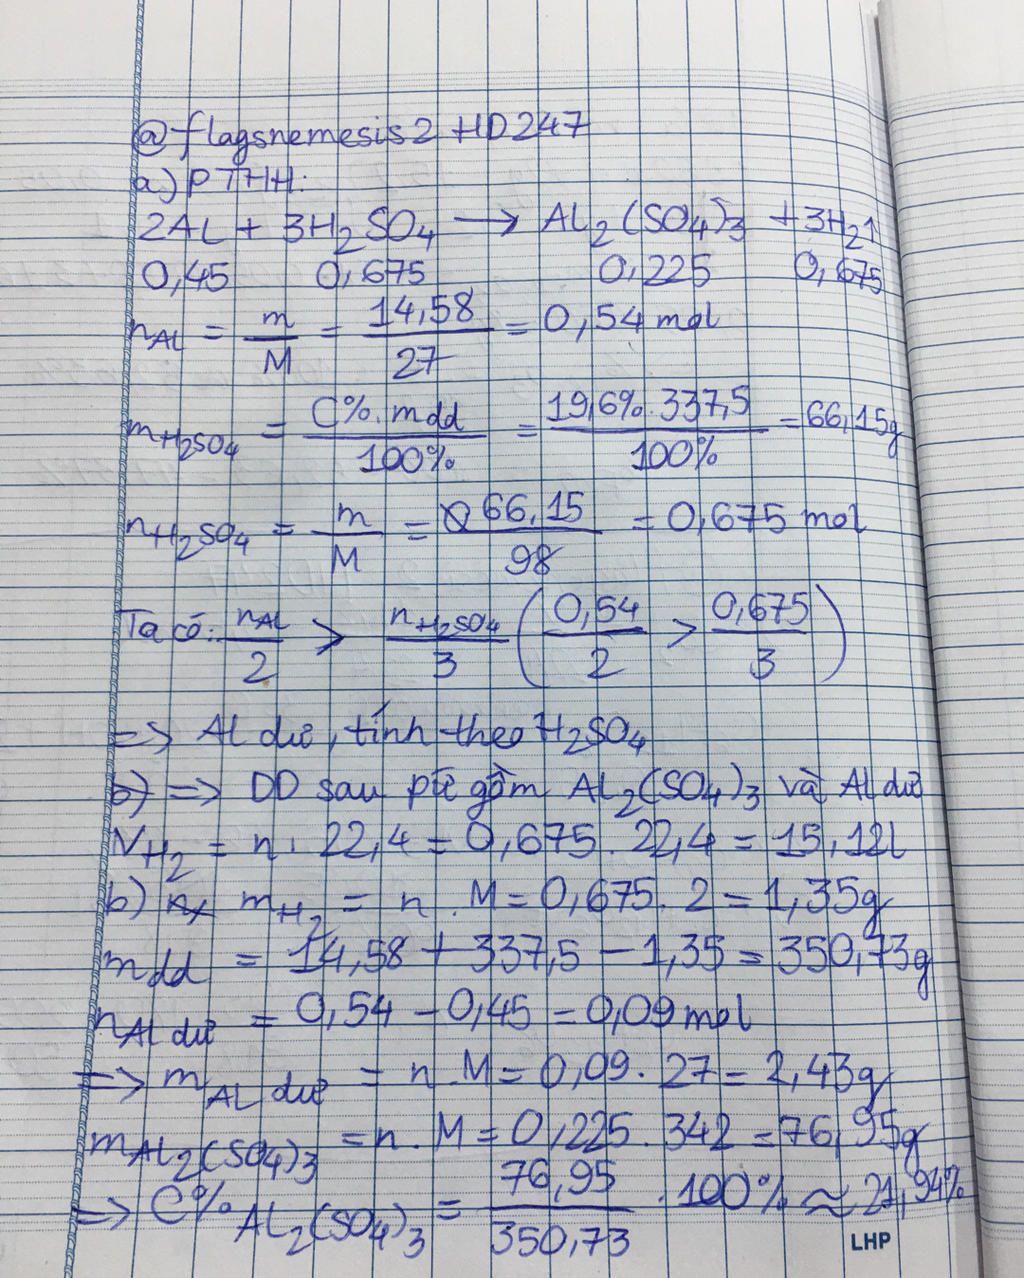 @flagsnemesis2 HD247
a) PTHH:
2Al + 3H₂SO₄ → Al₂(SO₄)₃ + 3H₂↑
0,45 0,675 0,225 0,675
nAl = m/M = 14,58/27 = 0,54 mol
mH₂SO₄ = C%.mdd/100% = 19,6%.337,5/100% = 66,15g
nH₂SO₄ = m/M = 66,15/98 = 0,675 mol
Ta có: nAl/2 > nH₂SO₄/3 (0,54/2 > 0,675/3)
=> Al dư, tính theo H₂SO₄
b) => DD sau pư gồm Al₂(SO₄)₃ và Al dư
VH₂ = n . 22,4 = 0,675 . 22,4 = 15,12l
b) mH₂ = n . M = 0,675 . 2 = 1,35g
mdd = 14,58 + 337,5 - 1,35 = 350,73g
nAl dư = 0,54 - 0,45 = 0,09 mol
=> mAl dư = n . M = 0,09 . 27 = 2,43g
mAl₂(SO₄)₃ = n . M = 0,225 . 342 = 76,95g
=> C% Al₂(SO₄)₃ = 76,95/350,73 . 100% ≈ 21,94%
LHP